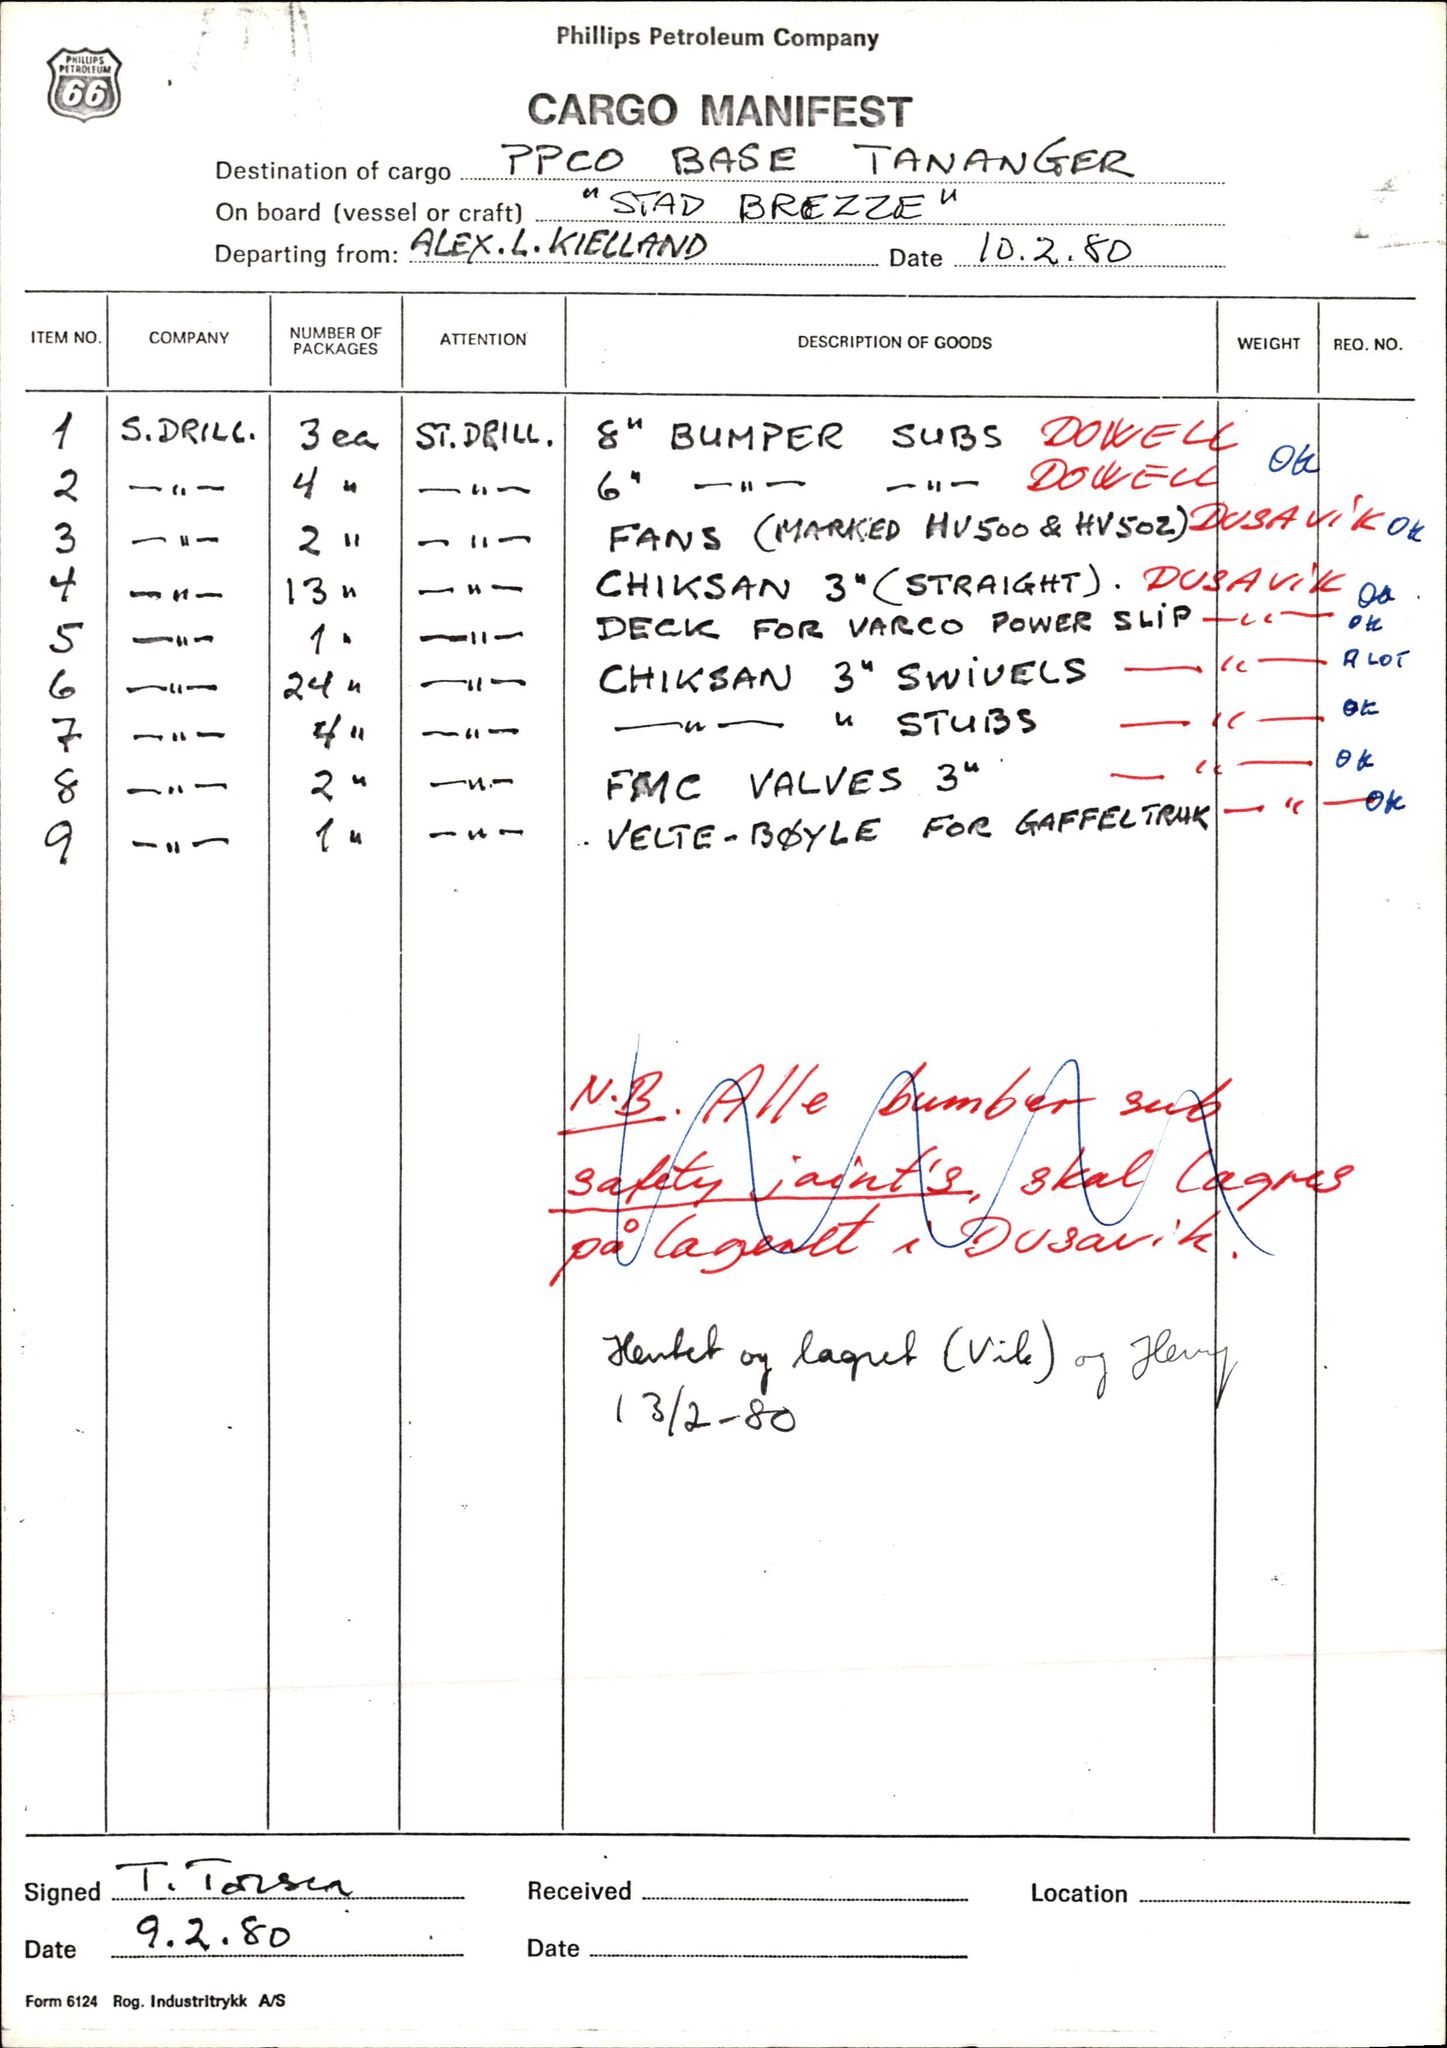 Phillips Petroleum Company
PHILLIPS
PETROLEUM
66
CARGO MANIFEST
Destination of cargo PPCO BASE TANANGER
On board (vessel or craft) "STAD BREZZE"
Departing from: ALEX.L.KIELLAND Date 10.2.80
ITEM NO. COMPANY NUMBER OF PACKAGES ATTENTION DESCRIPTION OF GOODS WEIGHT REQ. NO.
1 S.DRILL. 3 ea ST.DRILL. 8" BUMPER SUBS DOWELL OK
2 —"— 4 " —"— 6" —"— —"— DOWELL
3 —"— 2 " —"— FANS (MARKED HV500 & HV502) DUSAVIK OK
4 —"— 13 " —"— CHIKSAN 3" (STRAIGHT). DUSAVIK OK
5 —"— 1 " —"— DECK FOR VARCO POWER SLIP —"— OK
6 —"— 24 " —"— CHIKSAN 3" SWIVELS —"— A LOT
7 —"— 4 " —"— —"— " STUBS —"— OK
8 —"— 2 " —"— FMC VALVES 3" —"— OK
9 —"— 1 " —"— VELTE-BØYLE FOR GAFFELTRUK —"— OK
N.B. Alle bumber sub
safety joint's, skal lagres
på lageret i Dusavik.
Hentet og lagret (Vik) og Henry
13/2-80
Signed T. Torsen Received Location
Date 9.2.80 Date
Form 6124 Rog. Industritrykk A/S